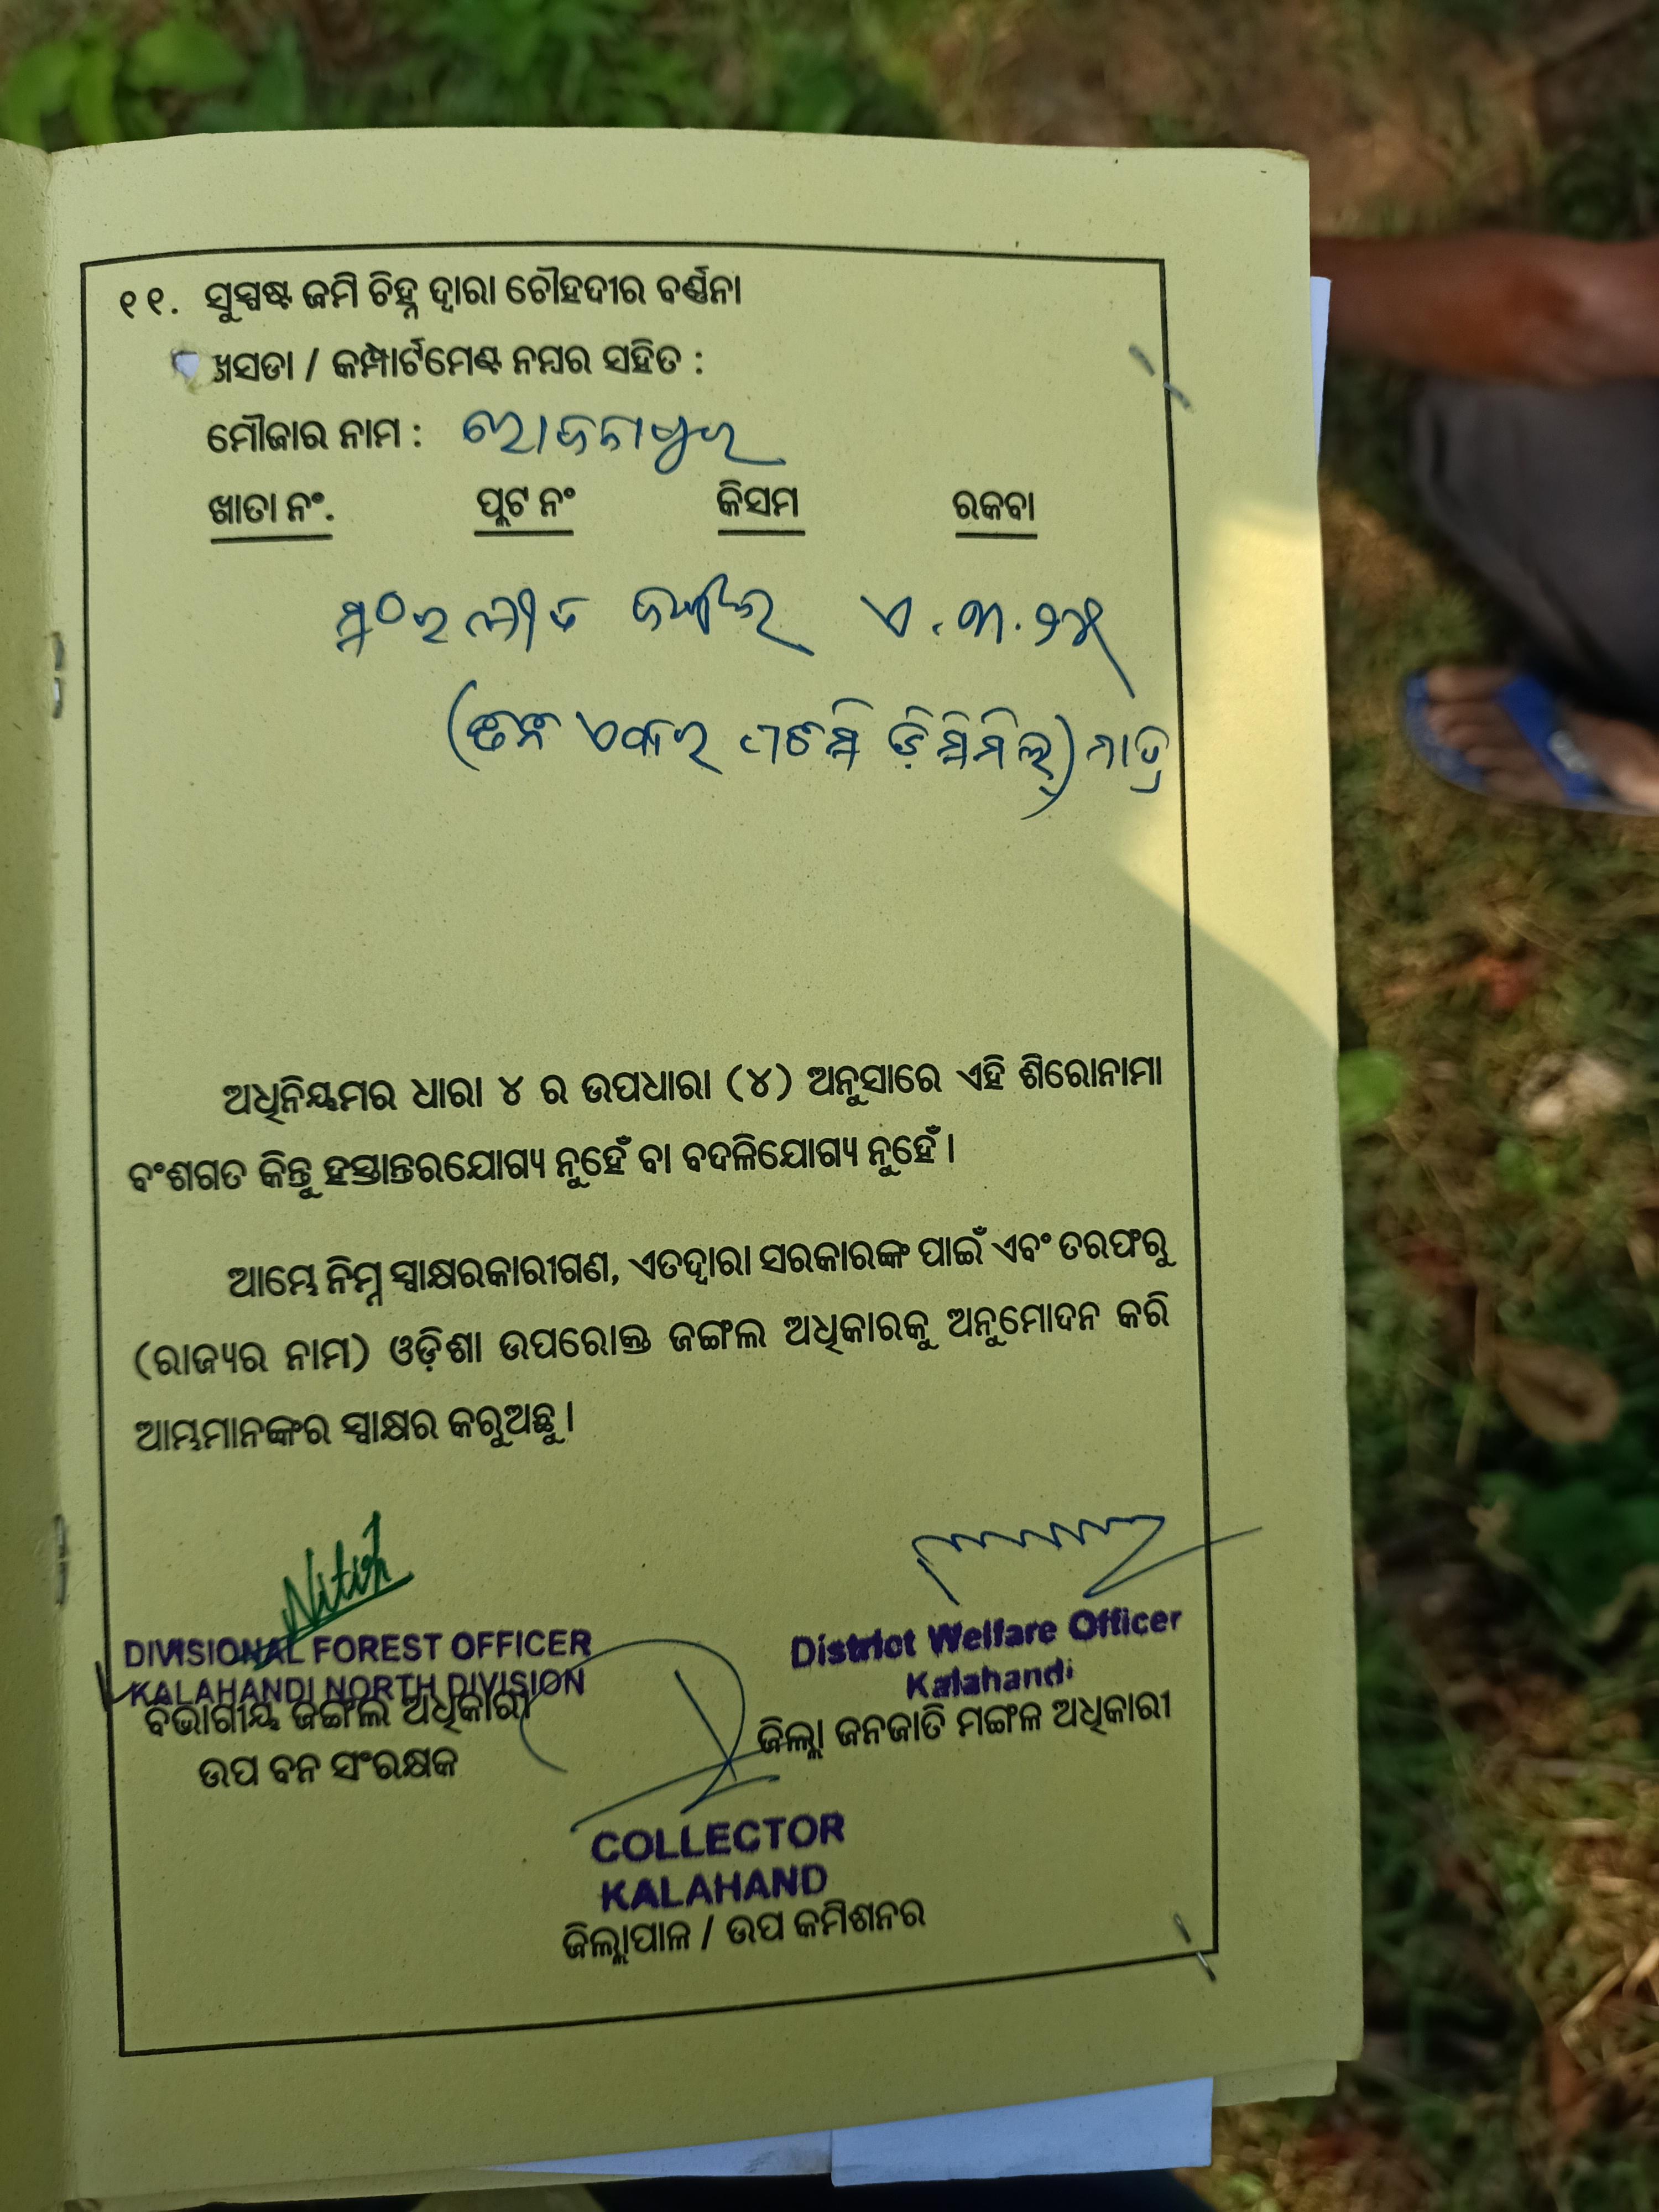 ୧୧. ସୁସ୍ପଷ୍ଟ ଜମି ଚିହ୍ନ ଦ୍ୱାରା ଚୌହଦୀର ବର୍ଣ୍ଣନା
ଖସଡା / କମ୍ପାର୍ଟମେଣ୍ଟ ନମ୍ବର ସହିତ :
ମୌଜାର ନାମ :
ଖାତା ନଂ. ପ୍ଲଟ ନଂ କିସମ ରକବା
ଜମିର ଏ.୩.୨୪
ଏକର ଡ଼ିସିମିଲ୍) ମାତ୍ର
ଅଧିନିୟମର ଧାରା ୪ ର ଉପଧାରା (୪) ଅନୁସାରେ ଏହି ଶିରୋନାମା
ବଂଶଗତ କିନ୍ତୁ ହସ୍ତାନ୍ତରଯୋଗ୍ୟ ନୁହେଁ ବା ବଦଳିଯୋଗ୍ୟ ନୁହେଁ ।
ଆମ୍ଭେ ନିମ୍ନ ସ୍ୱାକ୍ଷରକାରୀଗଣ, ଏତଦ୍ୱାରା ସରକାରଙ୍କ ପାଇଁ ଏବଂ ତରଫରୁ
(ରାଜ୍ୟର ନାମ) ଓଡ଼ିଶା ଉପରୋକ୍ତ ଜଙ୍ଗଲ ଅଧିକାରକୁ ଅନୁମୋଦନ କରି
ଆମ୍ଭମାନଙ୍କର ସ୍ୱାକ୍ଷର କରୁଅଛୁ ।
Nitish
DIVISIONAL FOREST OFFICER
KALAHANDI NORTH DIVISION
ବିଭାଗୀୟ ଜଙ୍ଗଲ ଅଧିକାରୀ
ଉପ ବନ ସଂରକ୍ଷକ
District Welfare Officer
Kalahandi
ଜିଲ୍ଲା ଜନଜାତି ମଙ୍ଗଳ ଅଧିକାରୀ
COLLECTOR
KALAHAND
ଜିଲ୍ଲାପାଳ / ଉପ କମିଶନର